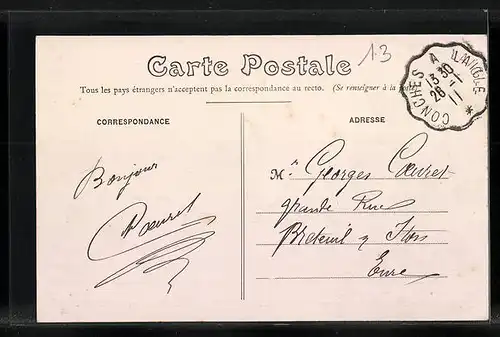 13
Carte Postale
Tous les pays étrangers n'acceptent pas la correspondance au recto. (Se renseigner à la poste)
CONCHES A LAIGLE
28 -1
11
CORRESPONDANCE
ADRESSE
Bonjour
Cœuret
Mr Georges Cœuret
grande Rue
Breteuil s/ Iton
Eure